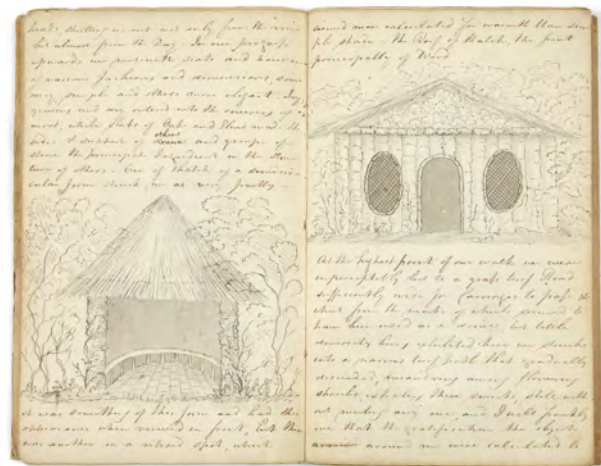 heads, shutting us out not only from the wind
but almost from the Day. In our progress
upwards we put into seats and
of various fashions and dimensions, some
very simple and others more elegant. Ingenious
and very entered into the
moss, while slabs of Oak and Elm made the
sides & support of others and groups of
stone the principal Ingredient in the
of others. One of thatch of a
form struck me as very pretty –
it was something of this form and had this
appearance when viewed in front, but there
was another in a retired spot, which
seemed more calculated for warmth than
simple shade. The Roof of thatch, the front
principally of Wood
At the highest point of our walk we were
imperceptibly led to a grass turf Road
sufficiently wide for Carriages to pass &
which from the marks of wheels proved to
have been used as a but little
here, we
into a narrow turf path that gradually
descended, meandering among flowering
shrubs, exhaling their sweets, still without
meeting any one, and I
me that the gratification the objects
around me were calculated to